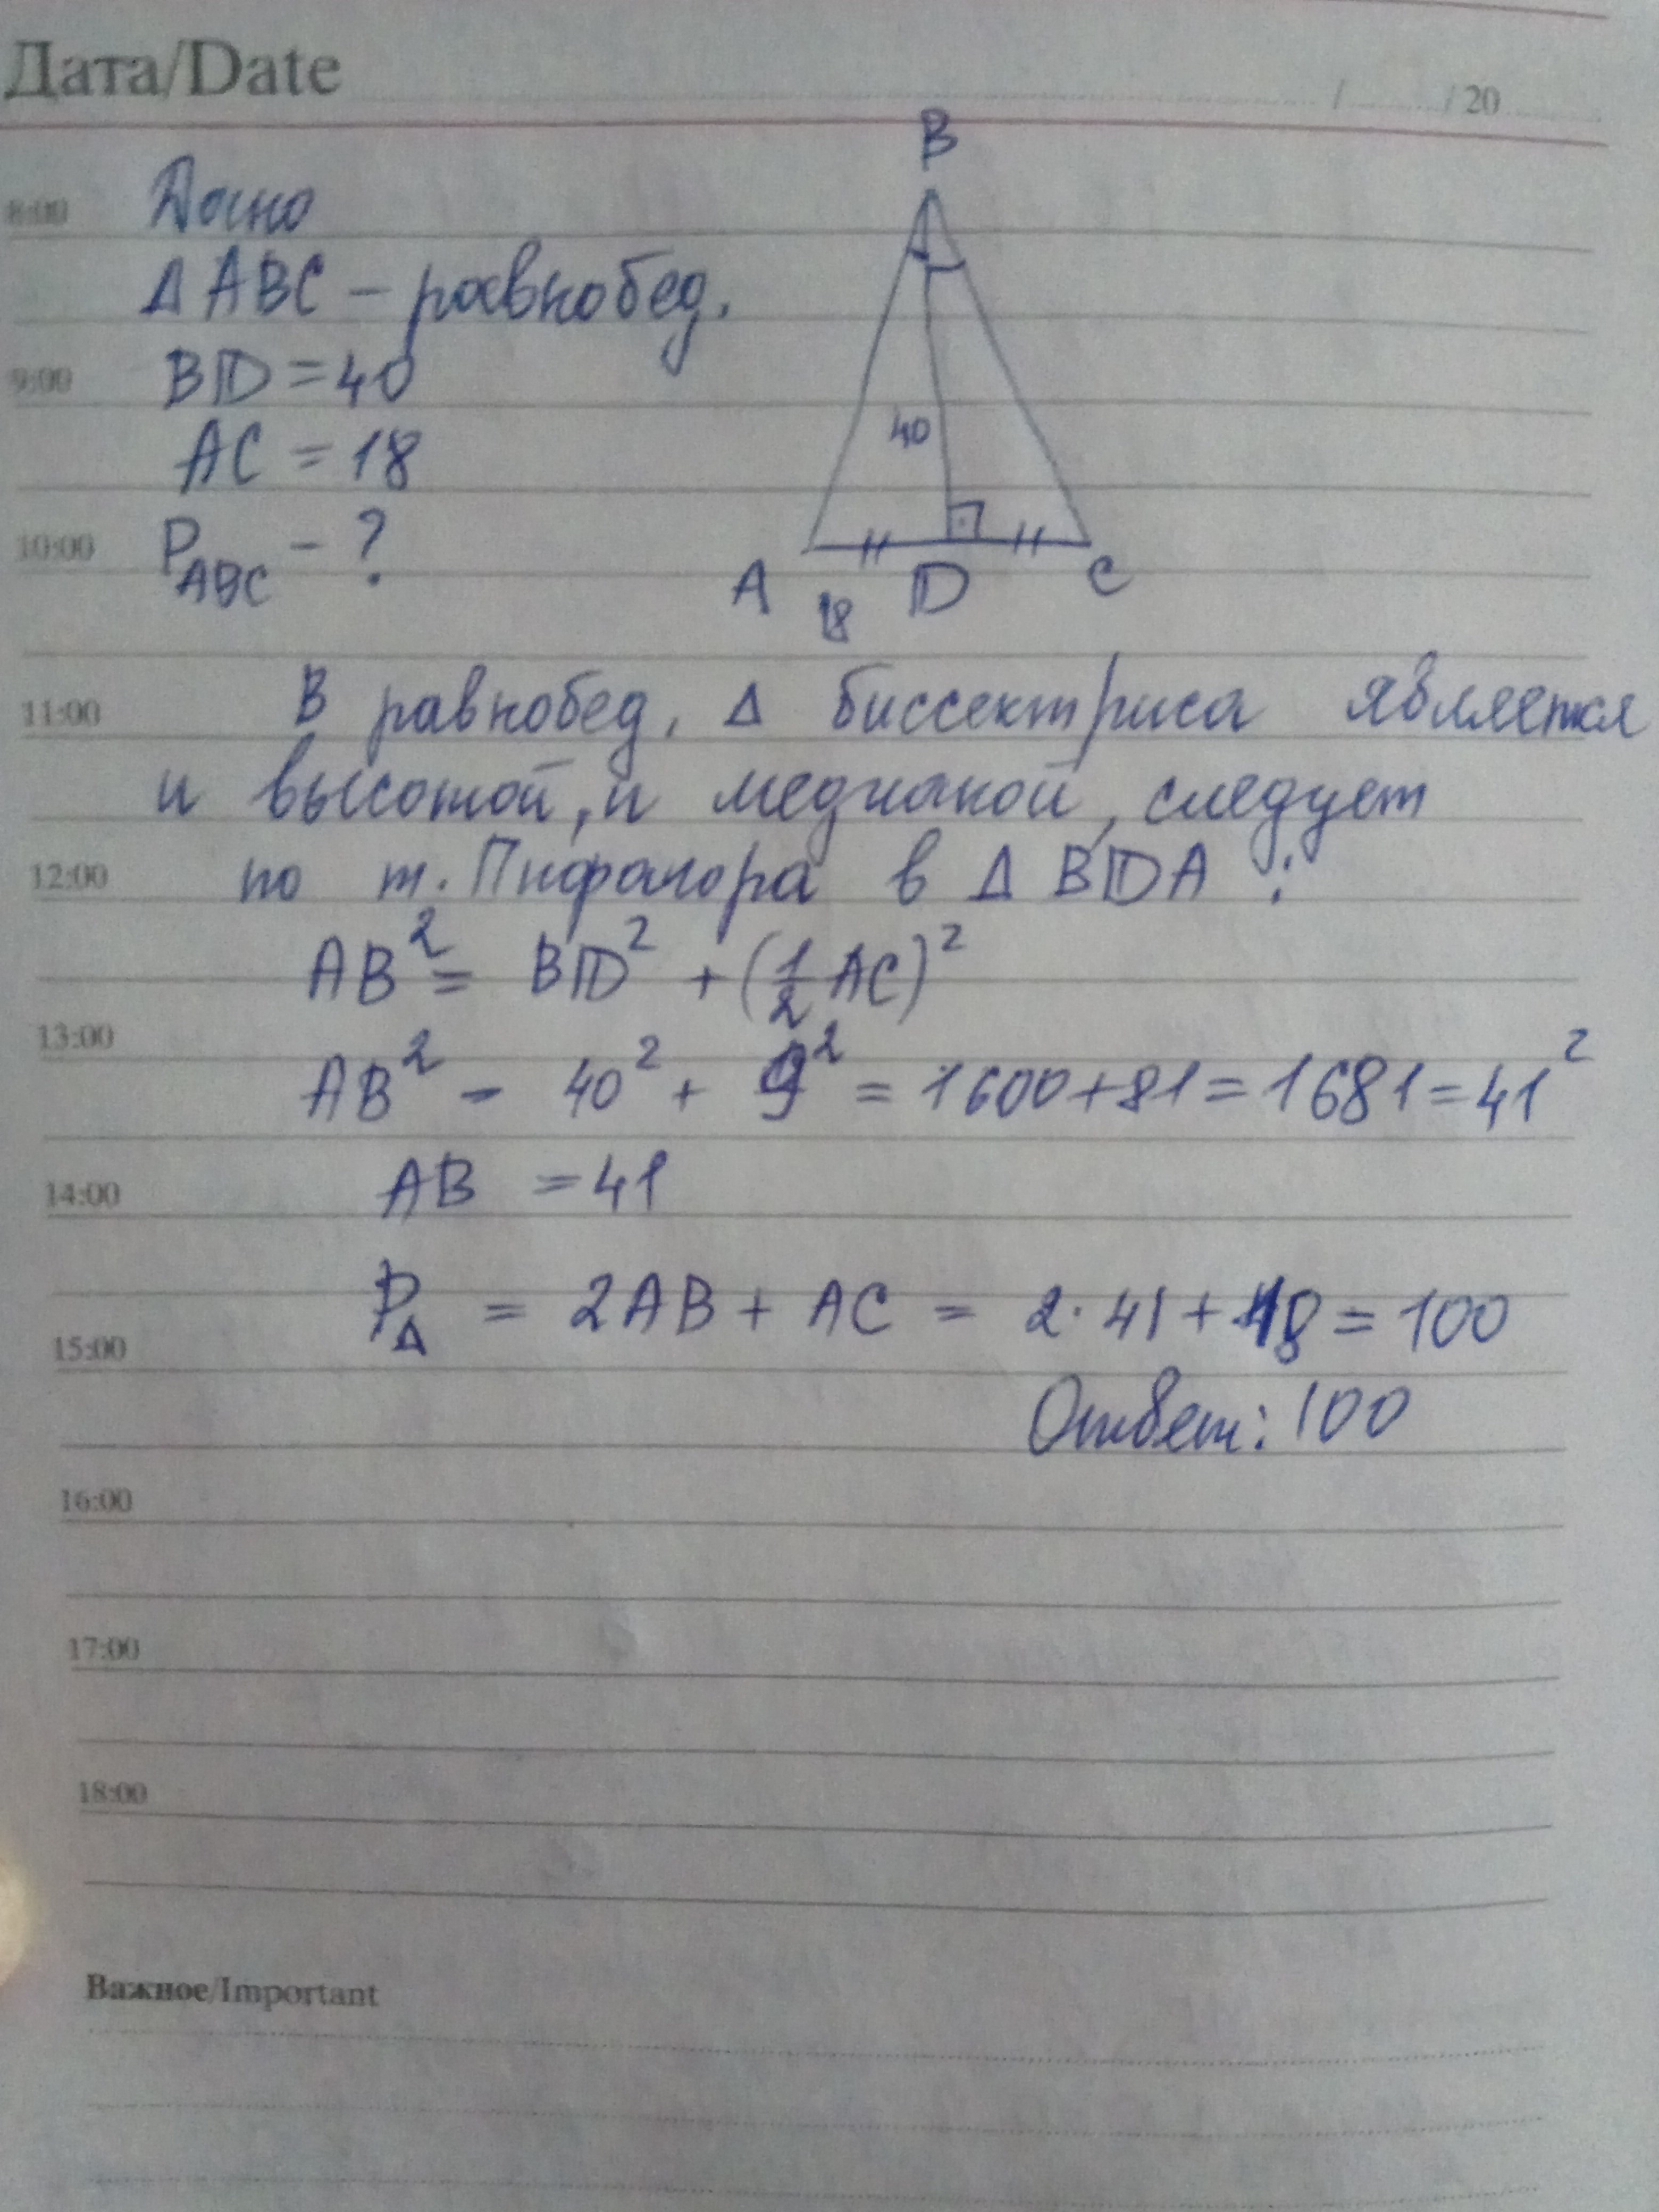 Дата/Date / / 20
B
8:00 Дано
Δ ABC – равнобед.
9:00 BD = 40
40
AC = 18
10:00 P ABC – ?
A 18 D C
11:00 В равнобед. Δ биссектриса является
и высотой, и медианой, следует
12:00 по т. Пифагора в Δ BDA :
AB² = BD² + (1/2 AC)²
13:00
AB² – 40² + 9² = 1600 + 81 = 1681 = 41²
14:00 AB = 41
P Δ = 2AB + AC = 2 · 41 + 18 = 100
15:00
Ответ: 100
16:00
17:00
18:00
Важное/Important